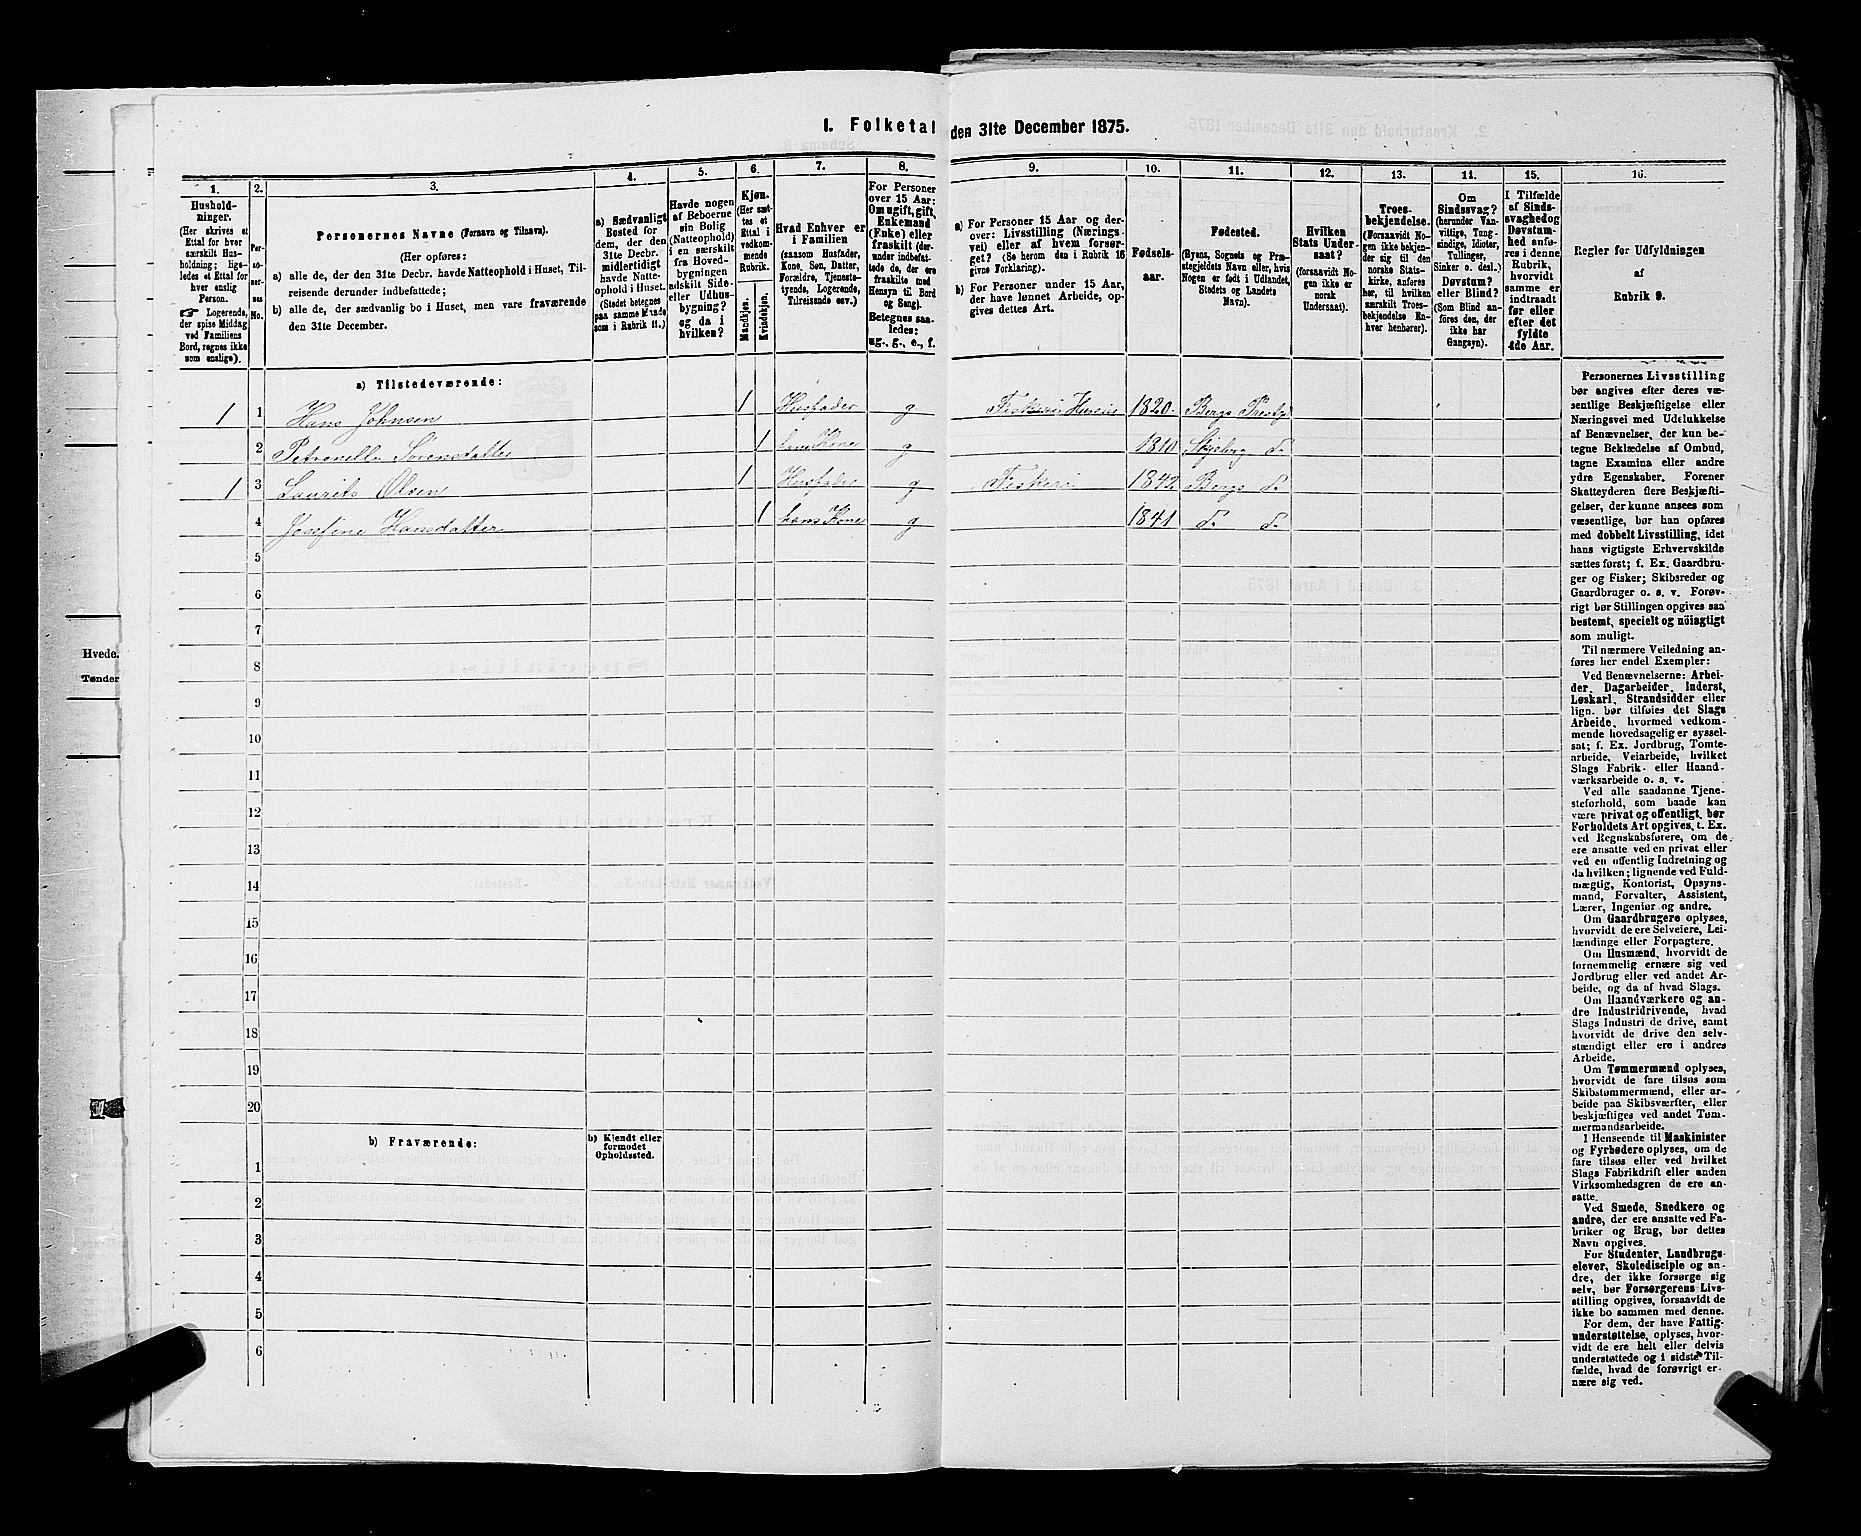 I. Folketal den 31te December 1875.
1.
Hushold-
ninger.
(Her skrives et
Ettal for hver
særskilt Hus-
holdning; lige-
ledes et Ettal for
hver enslig
Person.
Logerende,
der spise Middag
ved Familiens
Bord, regnes ikke
som enslige).
2.
Per-
so-
ner-
nes
No.
3.
Personernes Navne (Fornavn og Tilnavn).
(Her opføres:
a) alle de, der den 31te Decbr. havde Natteophold i Huset, Til-
reisende derunder indbefattede;
b) alle de, der sædvanlig bo i Huset, men vare fraværende
den 31te December.
4.
a) Sædvanligt
Bosted for
dem, der den
31te Decbr.
midlertidigt
havde Natte-
ophold i Huset.
(Stedet betegnes
paa samme Maade
som i Rubrik 11.)
5.
Havde nogen
af Beboerne
sin Bolig
(Natteophold)
i en særskilt
fra Hoved-
bygningen
adskilt Side-
eller Udhus-
bygning?
og da i
hvilken?
6.
Kjøn.
(Her sæt-
tes et
Ettal i
vedkom-
mende
Rubrik.
Mandkjøn.
Kvindekjøn.
7.
Hvad Enhver er
i Familien
(saasom Husfader,
Kone, Søn, Datter,
Forældre, Tjeneste-
tyende, Logerende,
Tilreisende osv.)
8.
For Personer
over 15 Aar:
Om ugift, gift,
Enkemand
(Enke) eller
fraskilt (der-
under indbefat-
tede de, der ere
fraskilte med
Hensyn til Bord
og Seng).
Betegnes saa-
ledes:
ug., g., e., f.
9.
a) For Personer 15 Aar og der-
over: Livsstilling (Nærings-
vei) eller af hvem forsør-
get? (Se herom den i Rubrik 16
givne Forklaring).
b) For Personer under 15 Aar,
der have lønnet Arbeide, op-
gives dettes Art.
10.
Fødsels-
aar.
11.
Fødested.
(Byens, Sognets og Præ-
stegjeldets Navn eller, hvis
Nogen er født i Udlandet,
Stedets og Landets
Navn).
12.
Hvilken
Stats Under-
saat?
(forsaavidt No-
gen ikke er
norsk
Undersaat).
13.
Troes-
bekjendelse.
(Forsaavidt No-
gen ikke bekjen-
der sig til den
norske Stats-
kirke, anføres
her, til hvilken
særskilt Troes-
bekjendelse En-
hver henhører).
14.
Om
Sindssvag?
(herunder Van-
vittige, Tung-
sindige, Idioter,
Tullinger,
Sinker o. desl.)
Døvstum?
eller Blind?
(Som Blind an-
føres den, der
ikke har
Gangsyn).
15.
I Tilfælde
af Sinds-
svaghed og
Døvstum-
hed anfø-
res i denne
Rubrik,
hvorvidt
samme er
indtraadt
før eller
efter det
fyldte
4de Aar.
16.
Regler for Udfyldningen
af
Rubrik 9.
a) Tilstedeværende:
1 1 Hans Johnsen 1 Husfader g Fisker i Hurum 1820 Bergs Prestgj
2 Petronelle Sørensdatter 1 hans Kone g 1810 Skjeberg do
1 3 Laurits Olsen 1 Husfader g Fisker 1842 Bergs do
4 Josefine Hansdatter 1 hans Kone g 1841 do do
5
6
7
8
9
10
11
12
13
14
15
16
17
18
19
20
b) Fraværende:
b) Kjendt eller
formodet
Opholdssted.
1
2
3
4
5
6
Personernes Livsstilling
bør angives efter deres væ-
sentlige Beskjæftigelse eller
Næringsvei med Udelukkelse
af Benævnelser, der kun be-
tegne Beklædelse af Ombud,
tagne Examina eller andre
ydre Egenskaber. Forener
Skatteyderen flere Beskjæfti-
gelser, der kunne ansees som
væsentlige, bør han opføres
med dobbelt Livsstilling, idet
hans vigtigste Erhvervskilde
sættes først; f. Ex. Gaardbru-
ger og Fisker; Skibsreder og
Gaardbruger o. s. v. Forøv-
rigt bør Stillingen opgives saa
bestemt, specielt og nöiagtigt
som muligt.
Til nærmere Veiledning an-
føres her endel Exempler:
Ved Benævnelserne: Arbei-
der, Dagarbeider, Inderst,
Løskarl, Strandsidder eller
lign. bør tilføies det Slags
Arbeide, hvormed vedkom-
mende hovedsagelig er syssel-
sat; f. Ex. Jordbrug, Tomte-
arbeide, Veiarbeide, hvilket
Slags Fabrik- eller Haand-
værksarbeide o. s. v.
Ved alle saadanne Tjene-
steforhold, som baade kan
være privat og offentligt, bør
Forholdets Art opgives, t. Ex.
ved Regnskabsførere, om de
ere ansatte ved en privat eller
ved en offentlig Indretning og
da hvilken; lignende ved Fuld-
mægtig, Kontorist, Opsyns-
mand, Forvalter, Assistent,
Lærer, Ingeniør og andre.
Om Gaardbrugere oplyses,
hvorvidt de ere Selveiere, Lei-
lændinge eller Forpagtere.
Om Husmænd, hvorvidt de
fornemmelig ernære sig ved
Jordbrug eller ved andet Ar-
beide, og da af hvad Slags.
Om Haandværkere og an-
dre Industridrivende, hvad
Slags Industri de drive, samt
hvorvidt de drive den selv-
stændigt eller ere i andres
Arbeide.
Om Tømmermænd oplyses,
hvorvidt de fare tilsøs som
Skibstømmermænd, eller ar-
beide paa Skibsværfter, eller
beskjæftiges ved andet Tøm-
mermandsarbeide.
I Henseende til Maskinister
og Fyrbødere oplyses, om de
fare tilsøs eller ved hvilket
Slags Fabrikdrift eller anden
Virksomhedsgren de ere an-
satte.
Ved Smede, Snedkere og
andre, der ere ansatte ved Fa-
briker og Brug, bør dettes
Navn opgives.
For Studenter, Landbrugs-
elever, Skoledisciple og an-
dre, der ikke forsørge sig
selv, bør Forsørgerens Livs-
stilling opgives, forsaavidt de
ikke bo sammen med denne.
For dem, der have Fattig-
understøttelse, oplyses, hvor-
vidt de ere helt eller delvis
understøttede og i sidste Til-
fælde, hvad de forøvrigt er-
nære sig ved.
Hvede.
Tønder